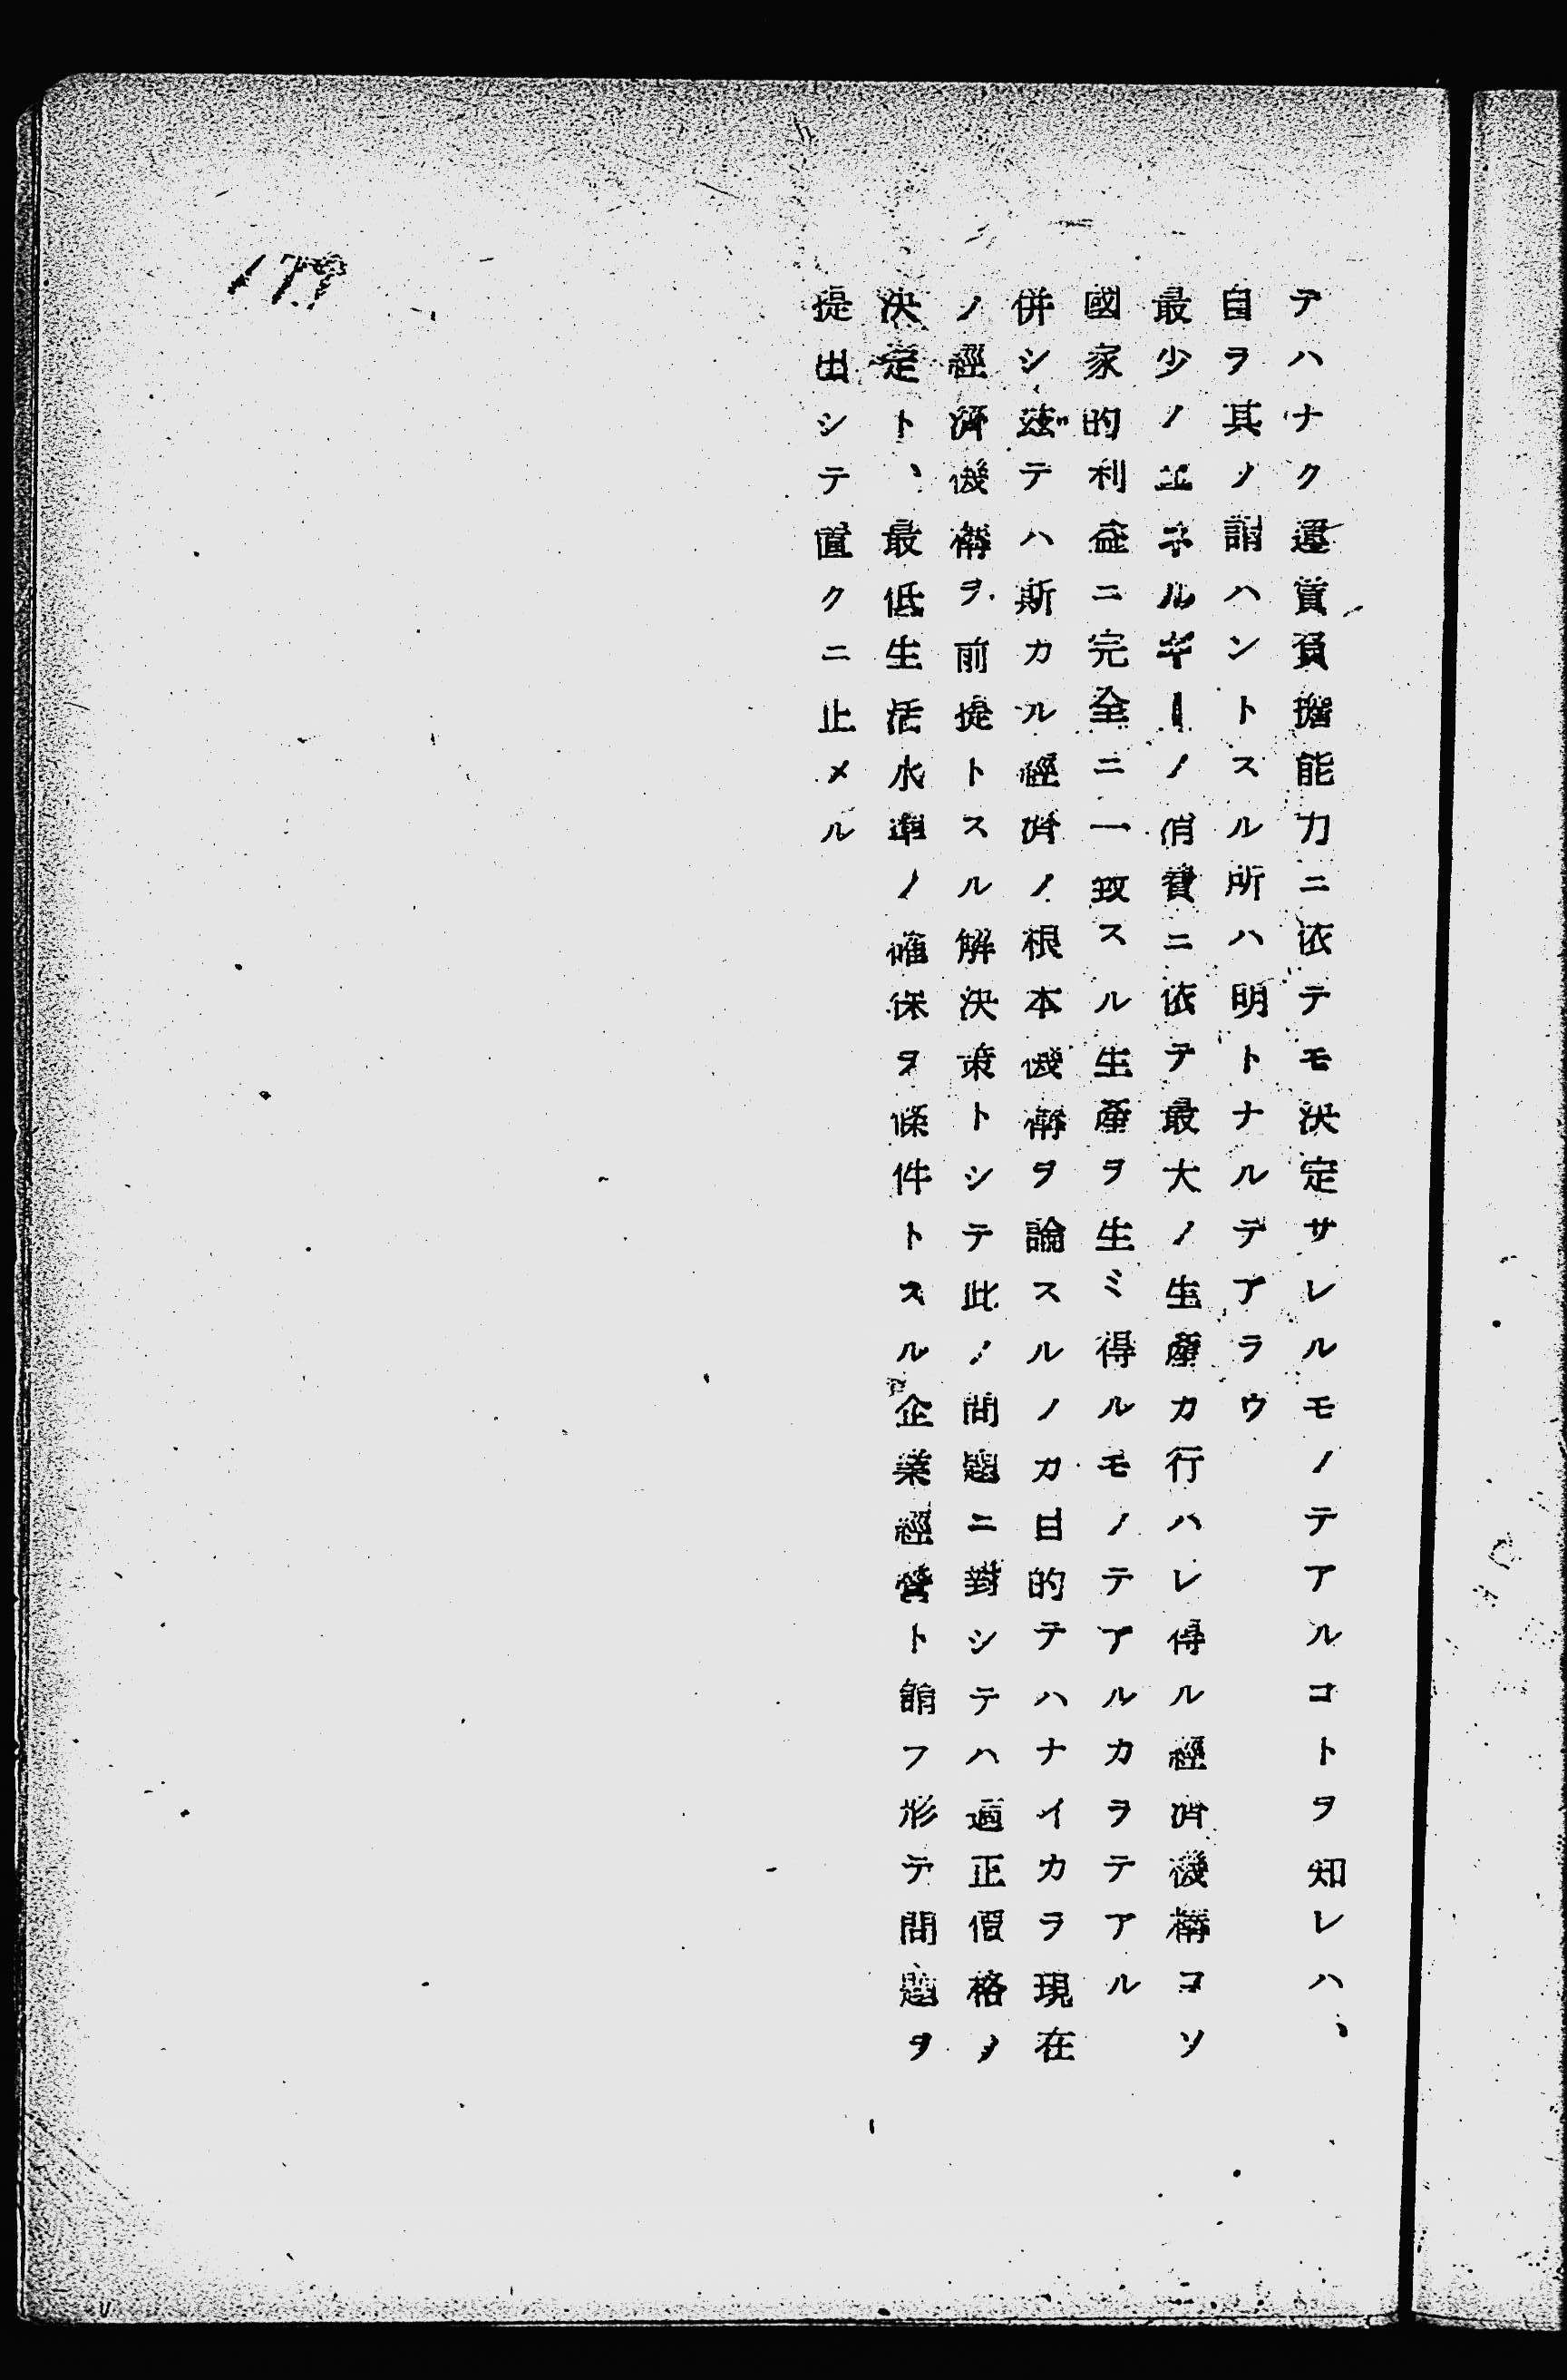 テハナク運賃負擔能力ニ依テモ決定サレルモノテアルコトヲ知レハ、
自ヲ其ノ謂ハントスル所ハ明トナルデアラウ
最少ノエネルギーノ消費ニ依テ最大ノ生產カ行ハレ得ル經濟機構コソ
國家的利益ニ完全ニ一致スル生產ヲ生ミ得ルモノテアルカラテアル
併シ茲テハ斯カル經濟ノ根本機構ヲ論スルノカ目的テハナイカラ現在
ノ經濟機構ヲ前提トスル解決策トシテ此ノ問題ニ對シテハ適正價格ノ
決定ト、最低生活水準ノ確保ヲ條件トスル企業經營ト謂フ形テ問題ヲ
提出シテ置クニ止メル